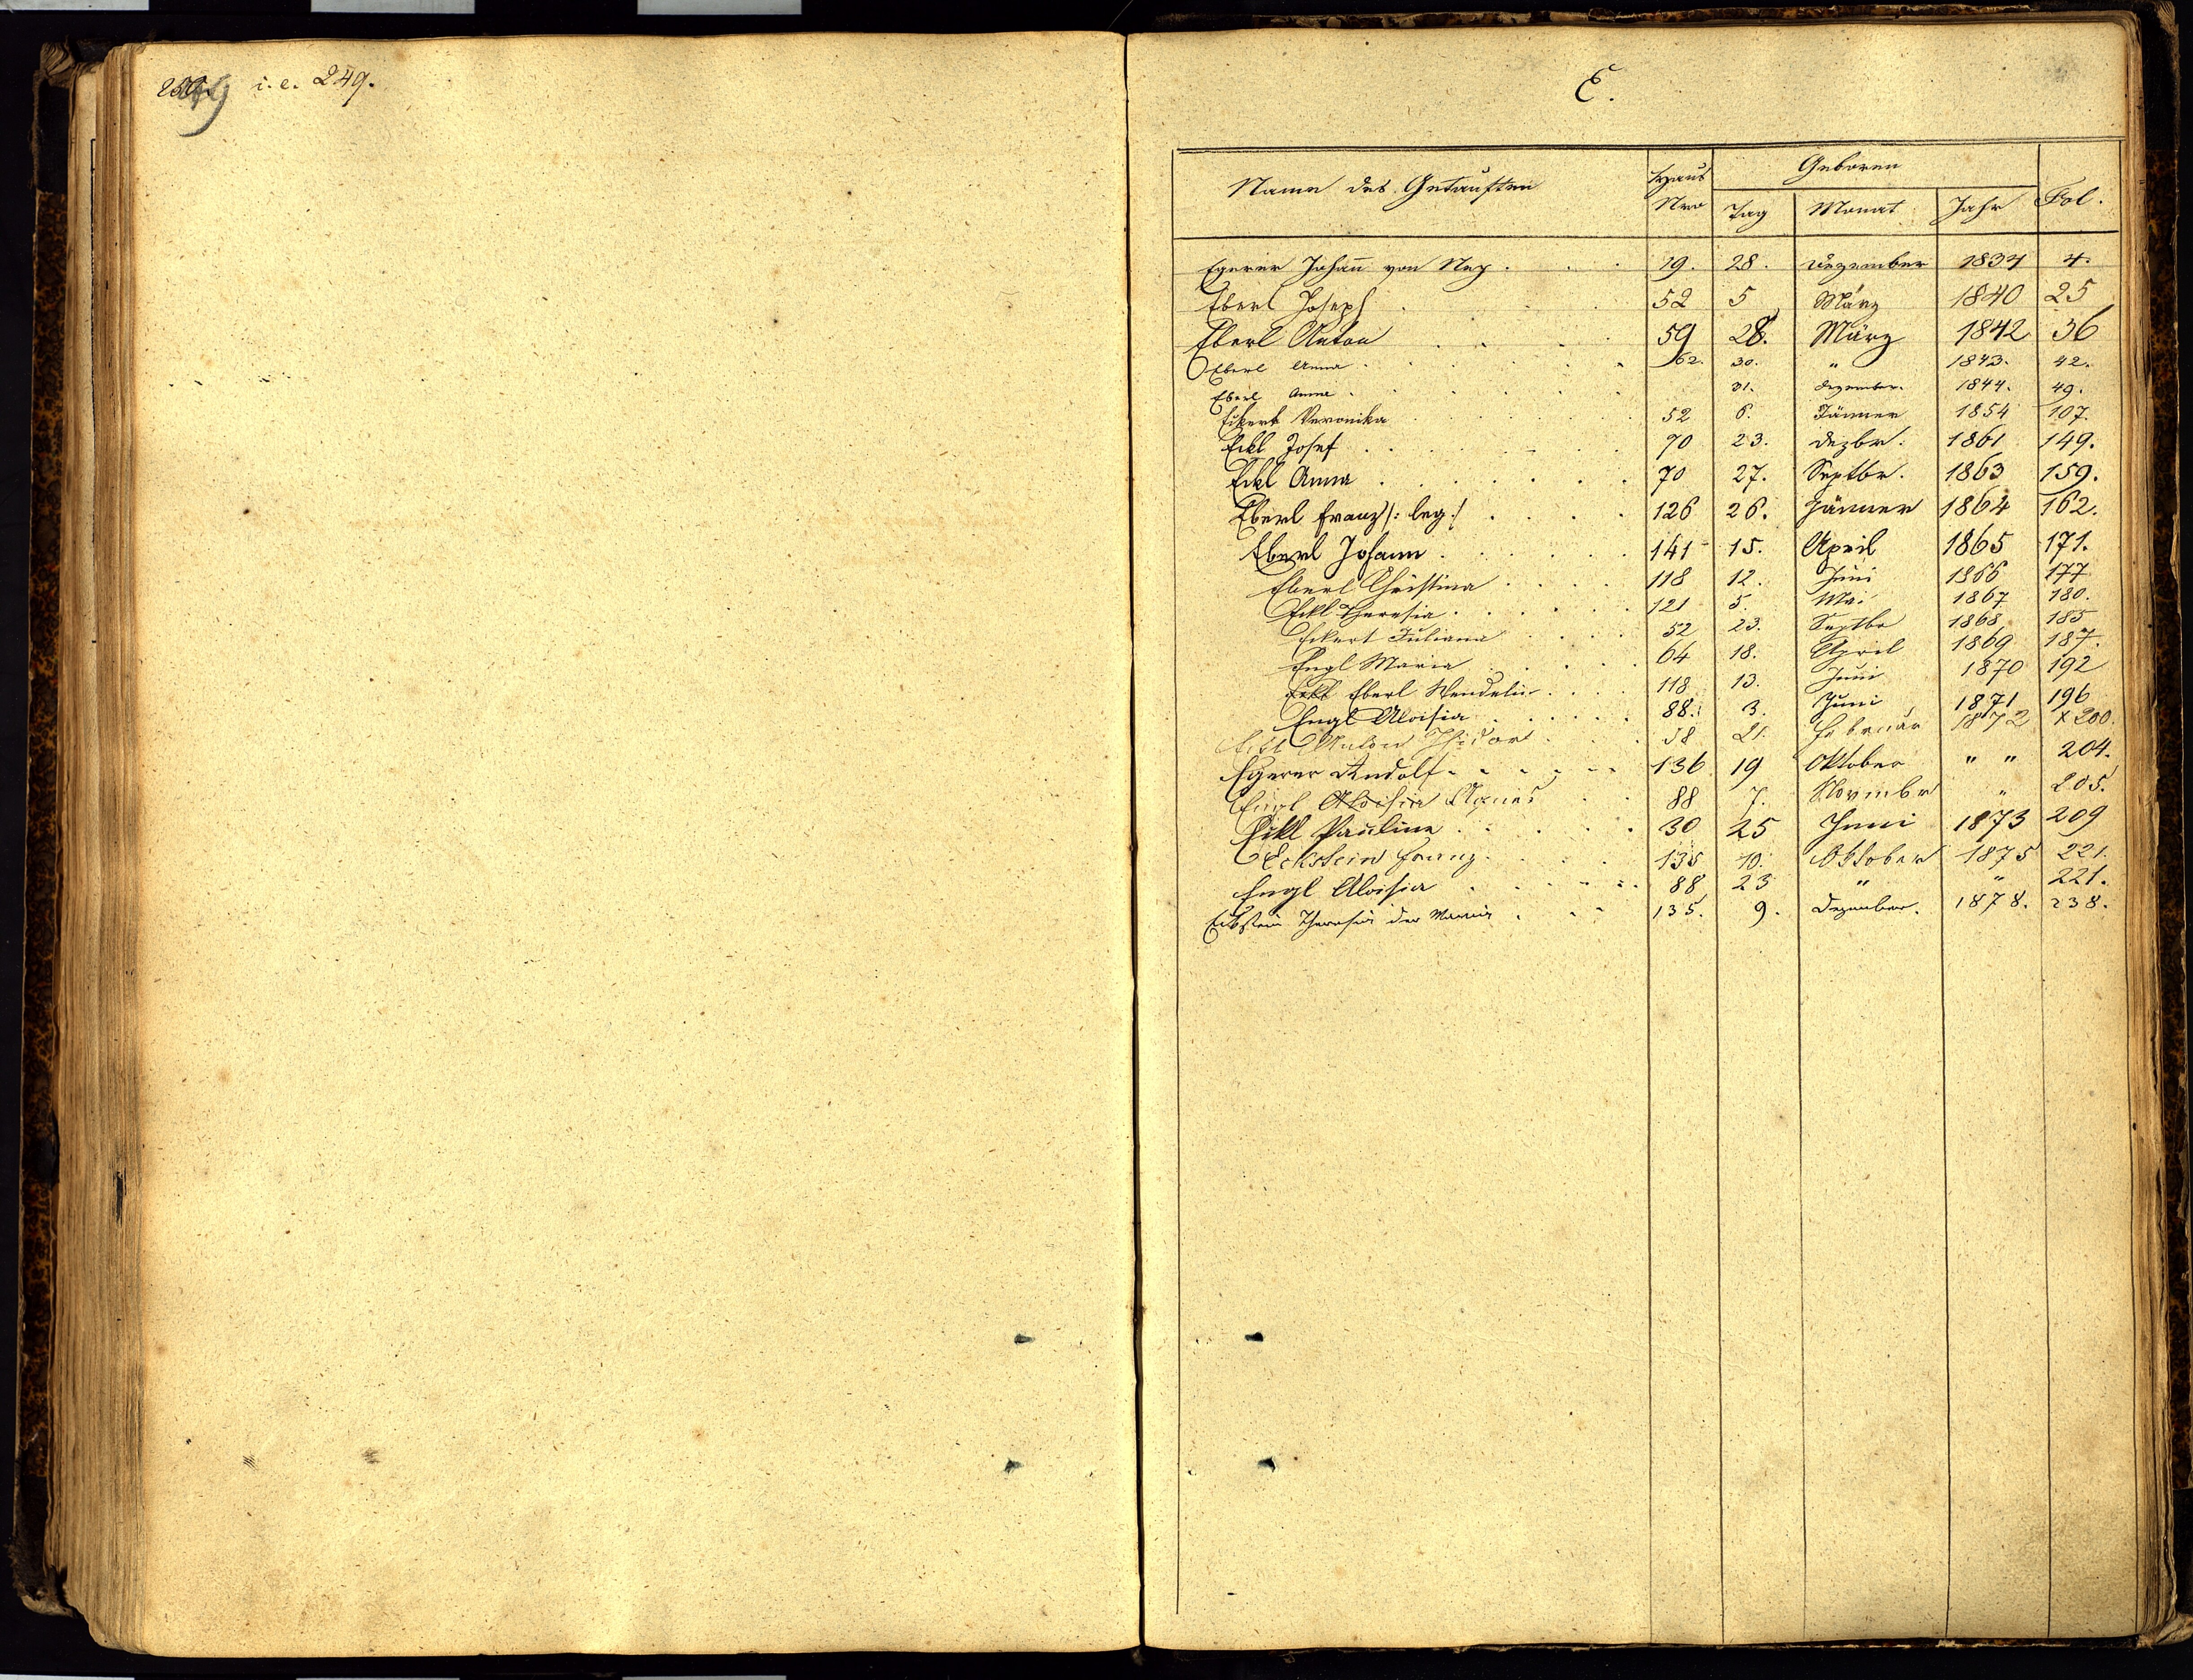 i. e. 249.
E.
Name des Getauften | Haus Nro | Geboren Tag | Monat | Jahr | Fol.
Egerer Johañ von Nep. | 19. | 28. | Dezember | 1834 | 4.
Eberl Joseph | 52 | 5 | März | 1840 | 25
Eberl Anton | 59 | 28. | März | 1842 | 36
Eberl Anna | 62. | 30. | " | 1843. | 42.
Eberl Anna | 31. | Dezember. | 1844. | 49.
Eckert Veronika | 52 | 6. | Jänner | 1854 | 107.
Eckl Josef | 70 | 23. | Dezbr. | 1861 | 149.
Eckl Anna | 70 | 27. | Septbr. | 1863 | 159.
Eberl Franz /: leg :/ | 126 | 26. | Jänner | 1864 | 162.
Eberl Johann | 141 | 15. | April | 1865 | 171.
Eberl Christina | 118 | 12. | Juni | 1866 | 177
Eckl Theresia | 121 | 5. | Mai | 1867 | 180.
Eckert Juliana | 52 | 23. | Septbr | 1868 | 185
Engl Maria | 64 | 18. | April | 1869 | 187.
Eckl Eberl Wendelin | 118 | 13. | Juni | 1870 | 192
Engl Aloisia | 88. | 3. | Juni | 1871 | 196
Eckl Anton Isidor | 58 | 21. | Februar | 1872 | x 200.
Egerer Rudolf | 136 | 19 | Oktober | " " | 204.
Engl Aloisia Agnes | 88 | 7. | Novembr | " | 205.
Eckl Pauline | 30 | 25 | Juni | 1873 | 209
Eckstein Franz | 135 | 10. | Oktober | 1875 | 221.
Engl Aloisia | 88 | 23 | " | " | 221.
Eckstein Theresia der Maria | 135. | 9. | Dezember. | 1878. | 238.